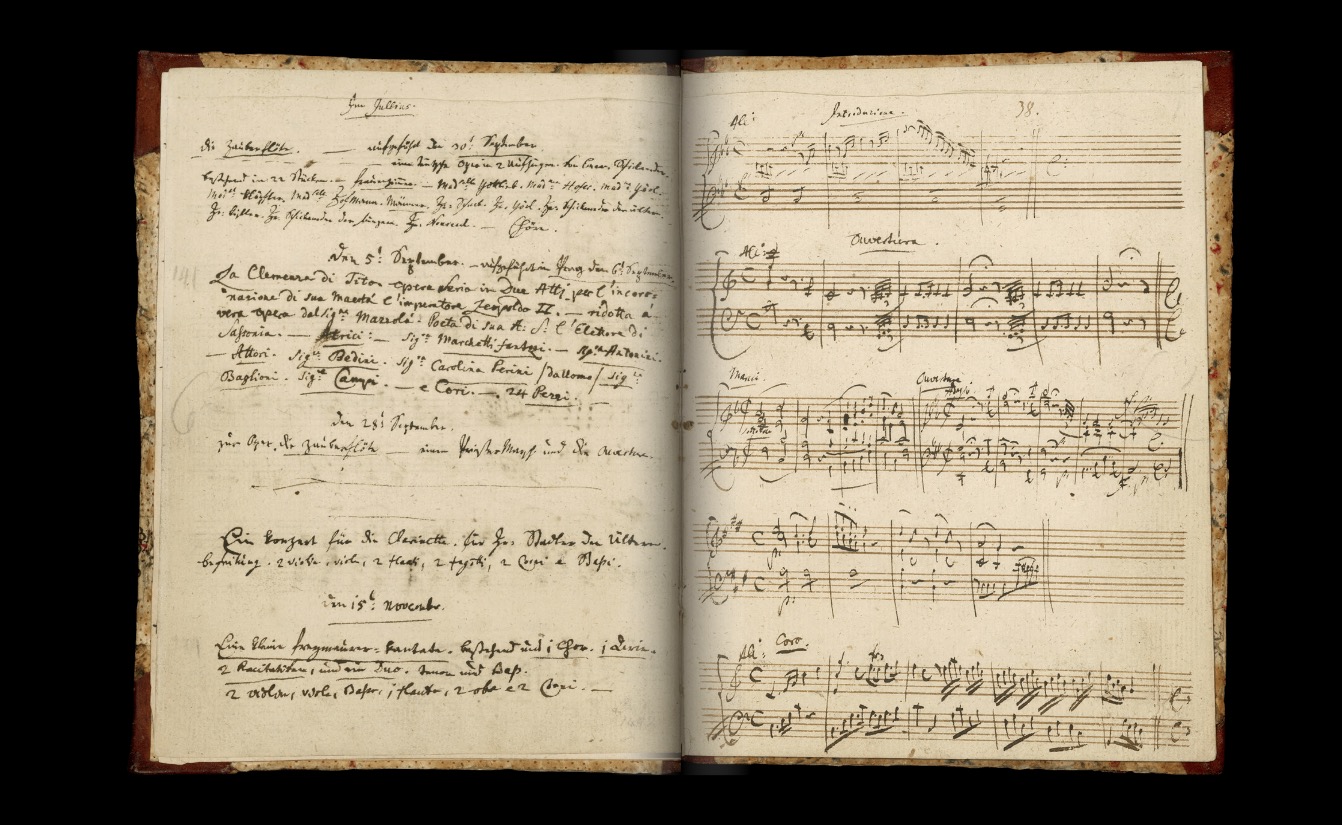 Im Jullius.
die Zauberflöte. — aufgeführt den 30t September.
— eine teutsche Oper in 2 Aufzügen. von Eman. Schikaneder.
bestehend in 22 Stücken. — frauenzimmer. — Mad:selle Gottlieb. Mad:me Hofer. Mad:me Görl.
Mad:me Klöpfler. Mad:selle Hofmann. Männer. Hr: Schack. Hr: Görl. Hr: Schikaneder der ältere.
Hr: Kistler. Hr: Schikaneder der jüngere. Hr: Nouseul. — Chöre.
den 5t September. — aufgeführt in Prag den 6t September.
La Clemenza di Tito. opera seria in Due Atti. per l'incoro=
nazione di sua Maestà l'imperatore Leopoldo II. — ridotta a
vera opera dal Sigre Mazzolà. Poeta di sua A: S: l'Elettore di
Sassonia. — Atrici: — Sigra Marchetti fantozi. — Sigra Antonini.
— Attori. Sigre Bedini. Sigra Carolina Perini /da Uomo/ Sigre
Baglioni. Sigre Campi. — e Cori. — 24 Pezzi.
den 28t September.
zur Oper. die Zauberflöte — einen Priester Marsch und die Ouverture.
Ein Konzert für die Clarinette. für Hr: Stadler den Ältern.
begleitung. 2 violini, viola, 2 flauti, 2 fagotti, 2 Corni e Bassi.
den 15t Novembr.
Eine kleine freymaurer-kantate. bestehend aus 1 Chor. 1 Arie.
2 Recitativen, und ein Duo. tenor und Bass.
2 violini, viola, Basso, 1 flauto, 2 oboe e 2 Corni. —
38.
Introduzione.
All:o
Ouvertura.
All:o
Marcia.
Ouverture
Adagio
Coro.
All:o